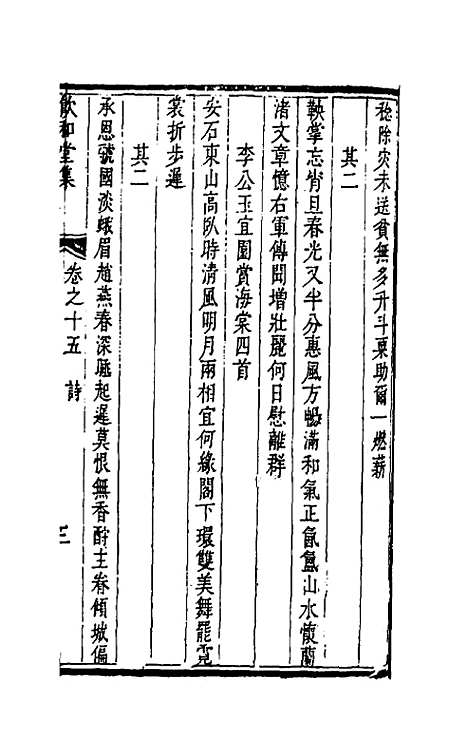 稔除灾未送貧無多升斗粟助爾一燃薪
其二
鞅掌忘宵旦春光又半分惠風方暢滿和氣正氤氳山水懷蘭
渚文章憶右軍傳聞增壯麗何日慰離群
李公玉宜園賞海棠四首
安石東山高臥時清風明月兩相宜何緣閣下環雙美舞罷霓
裳折步遲
其二
承恩虢國淡蛾眉趙燕春深睡起遲莫恨無香酧主眷傾城偏
飲和堂集
卷之十五 詩 三